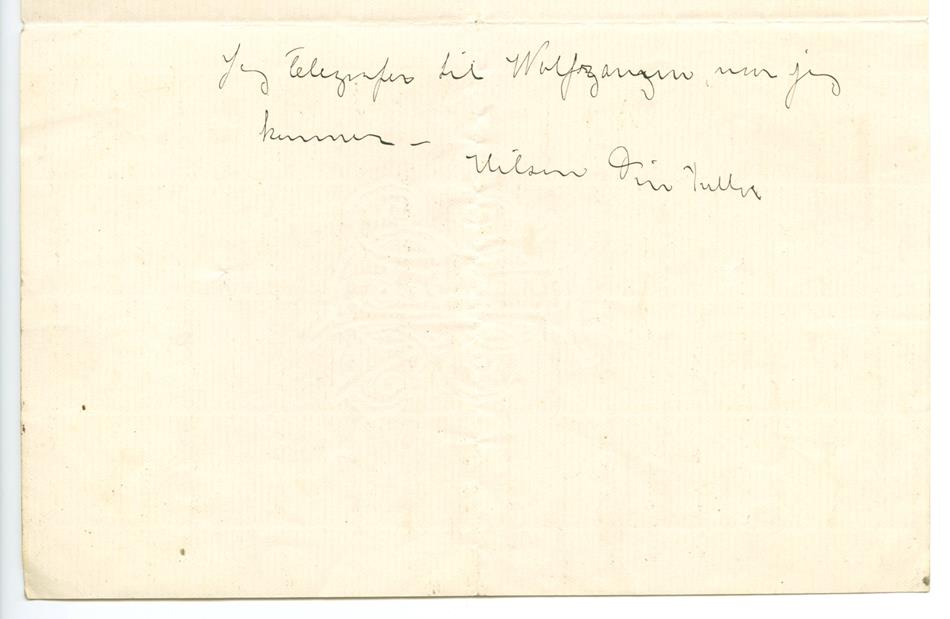 Jeg telegrafer til Wolfsgangen, naar jeg
kommer –
Hilsen Din Tulla